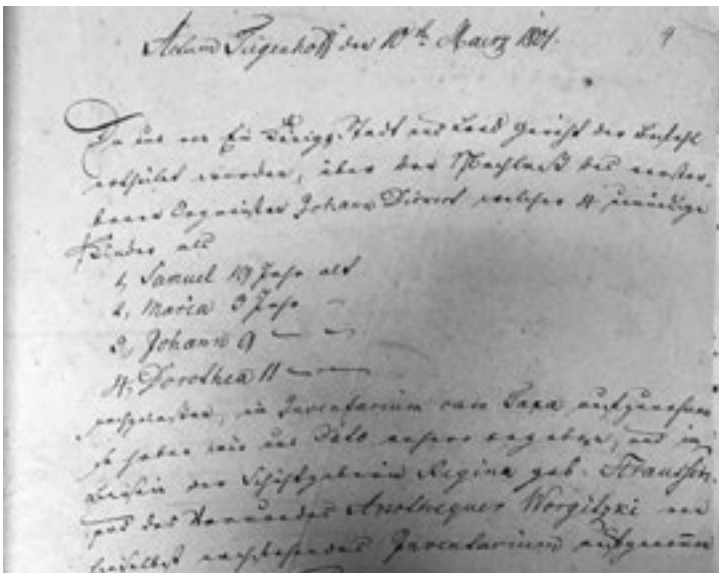 Actum Tiegenhoff den 10th Maerz 1801. 9
Da uns von Ein Königl. Stadt und Land Gericht der Befehl
ertheilet worden, über den Nachlaß des verstor-
benen Johann welcher 4 unmündige
Kinder als
1, Samuel 19 Jahr alt
2, Maria 3 Jahr –
3, Johann 9 – –
4, Dorothea 11 – –
nachgelassen, ein Inventarium nebst Taxa aufzunehmen
so haben wir uns dato anhero begeben, und in
der Regina geb. Straussin
und des Vormundes Apothequer Worgitzki
hieselbst nachstehendes Inventarium aufgenommen